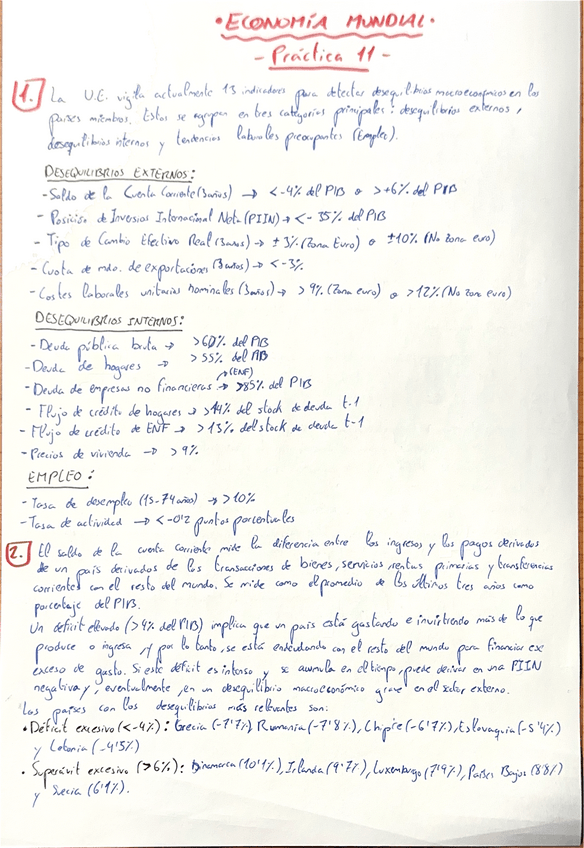 • ECONOMÍA MUNDIAL •
- Práctica 11 -
1. La U.E. vigila actualmente 13 indicadores para detectar desequilibrios macroeconómicos en los
países miembros. Estos se agrupan en tres categorías principales: desequilibrios externos,
desequilibrios internos y tendencias laborales preocupantes (Empleo).
DESEQUILIBRIOS EXTERNOS:
- Saldo de la Cuenta Corriente (3 años) → <-4% del PIB o >+6% del PIB
- Posición de Inversión Internacional Neta (PIIN) → <-35% del PIB
- Tipo de Cambio Efectivo Real (3 años) → ±3% (Zona Euro) o ±10% (No zona euro)
- Cuota de mdo. de exportaciones (3 años) → <-3%
- Costes laborales unitarios nominales (3 años) → >9% (Zona euro) o >12% (No zona euro)
DESEQUILIBRIOS INTERNOS:
- Deuda pública bruta → >60% del PIB
- Deuda de hogares → >55% del PIB
(ENF)
- Deuda de empresas no financieras → >85% del PIB
- Flujo de crédito de hogares → >14% del stock de deuda t-1
- Flujo de crédito de ENF → >13% del stock de deuda t-1
- Precios de vivienda → >9%
EMPLEO:
- Tasa de desempleo (15-74 años) → >10%
- Tasa de actividad → <-0'2 puntos porcentuales
2. El saldo de la cuenta corriente mide la diferencia entre los ingresos y los pagos derivados
de un país derivados de las transacciones de bienes, servicios, rentas primarias y transferencias
corrientes con el resto del mundo. Se mide como el promedio de los últimos tres años como
porcentaje del PIB.
Un déficit elevado (>4% del PIB) implica que un país está gastando e invirtiendo más de lo que
produce o ingresa, y por lo tanto, se está endeudando con el resto del mundo para financiar ese
exceso de gasto. Si este déficit es intenso y se acumula en el tiempo, puede derivar en una PIIN
negativa y, eventualmente, en un desequilibrio macroeconómico grave en el sector externo.
Los países con los desequilibrios más relevantes son:
• Déficit excesivo (<-4%): Grecia (-7'7%), Rumanía (-7'8%), Chipre (-6'7%), Eslovaquia (-5'4%)
y Letonia (-4'5%)
• Superávit excesivo (>6%): Dinamarca (10'1%), Irlanda (9'7%), Luxemburgo (7'9%), Países Bajos (8'8%)
y Suecia (6'1%).